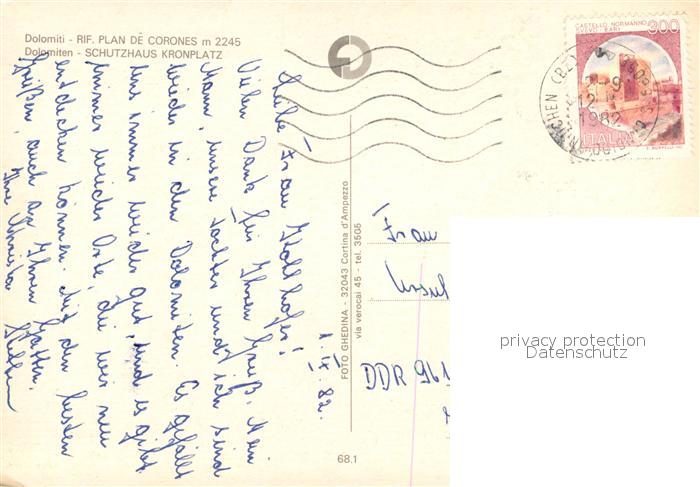 Dolomiti - RIF. PLAN DE CORONES m 2245
Dolomiten - SCHUTZHAUS KRONPLATZ
1. IX. 82.
Liebe Frau
Vielen Dank für Ihren Gruß. Mein
Mann, unsere Tochter und ich sind
wieder in den Dolomiten. Es gefällt
uns immer wieder gut, und es gibt
immer wieder Orte, die wir neu
entdecken können. Mit den besten
Grüßen, auch an Ihren Gatten,
Ihre
FOTO GHEDINA - 32043 Cortina d'Ampezzo
via verocai 45 - tel. 3505
68.1
CASTELLO NORMANNO
SVEVO BARI
300
ITALIA
1982
Frau
Ursul
DDR 961
privacy protection
Datenschutz